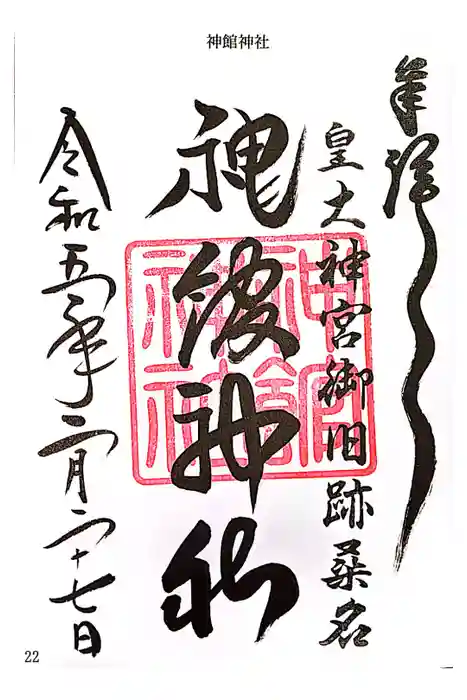 神館神社
奉拝
皇大神宮御旧跡桑名
神館神社
神館神社
令和五年二月二十七日
22